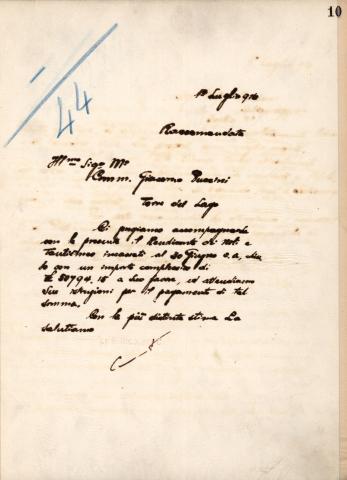 10
44
1º Luglio 916
Raccomandata
Illmo Sigr Mo
Comm. Giacomo Puccini
Torre del Lago
Ci pregiamo accompagnarLe
con la presente il Rendiconto dei Noli e
incassati al 30 Giugno c.a.
con un importo complessivo di
a Suo favore, ed attendiamo
Sue istruzioni per il pagamento di tal
somma.
Con la più distinta stima La
salutiamo